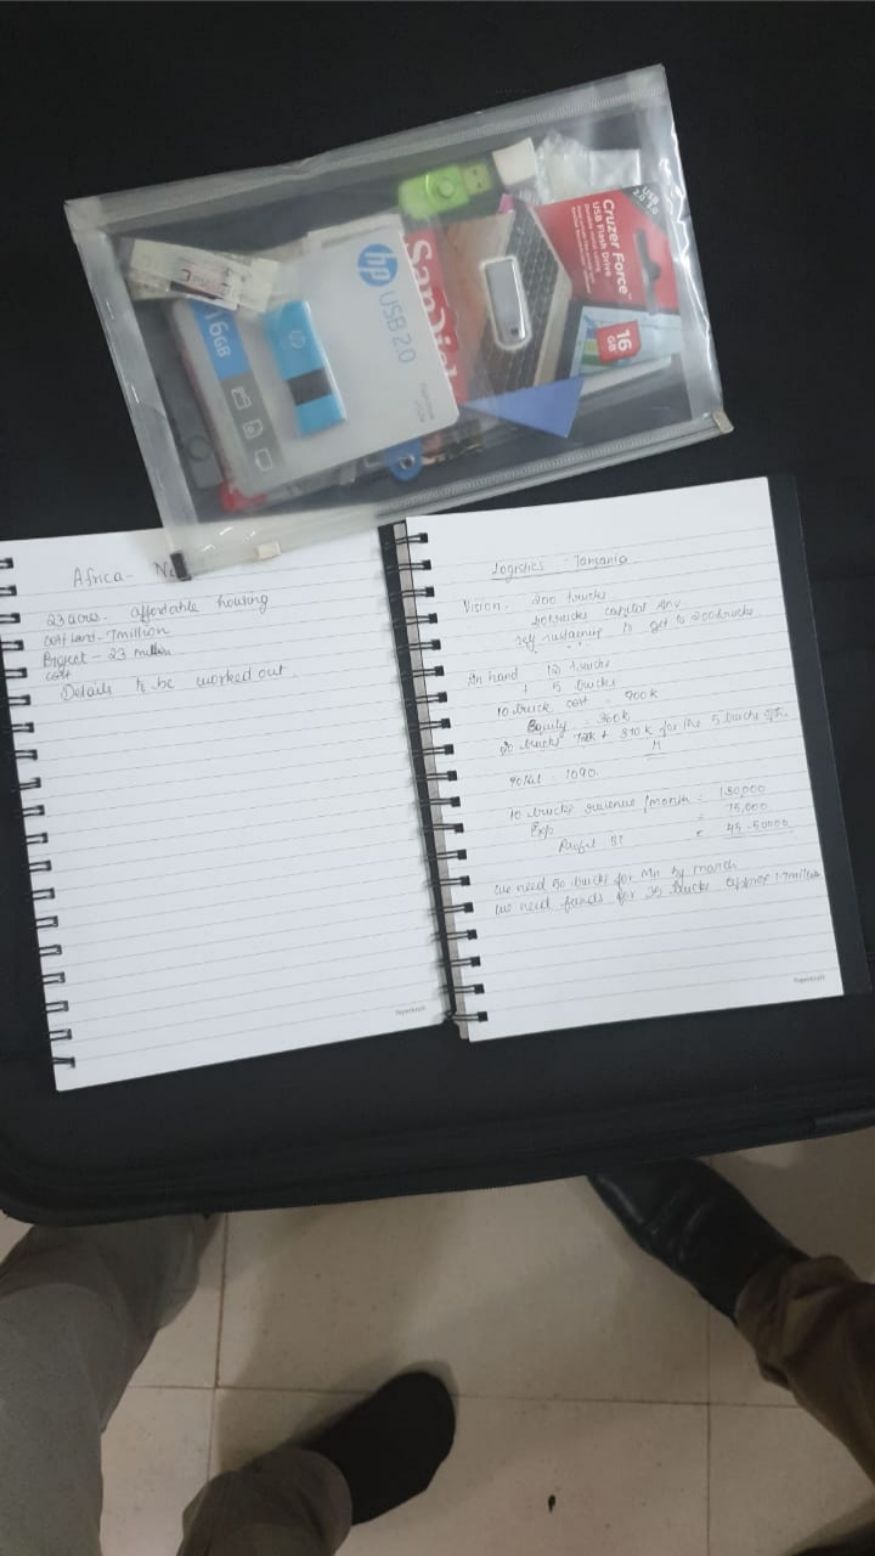 Cruzer Force™
USB Flash Drive
USB 2.0
16 GB
SanDisk
hp USB 2.0
16GB
hp
Africa -
23 acres - affordable housing
cost land - 7million
Project - 23 million
cost
Details to be worked out.
Paperkraft
Logistics - Tanzania
Vision - 200 trucks
trucks capital Inv
self sustaining to get to 200trucks
In hand 12 trucks
+ 5 trucks
10 truck cost = 900k
Equity = 360k
20 trucks 720k + 370k for the 5 trucks
Total = 1090
10 trucks revenue /month = 130,000
Exp = 75,000
Profit BT = 45-50000
we need 50 trucks for Mn by march
we need funds for 35 trucks approx 1.7million
Paperkraft